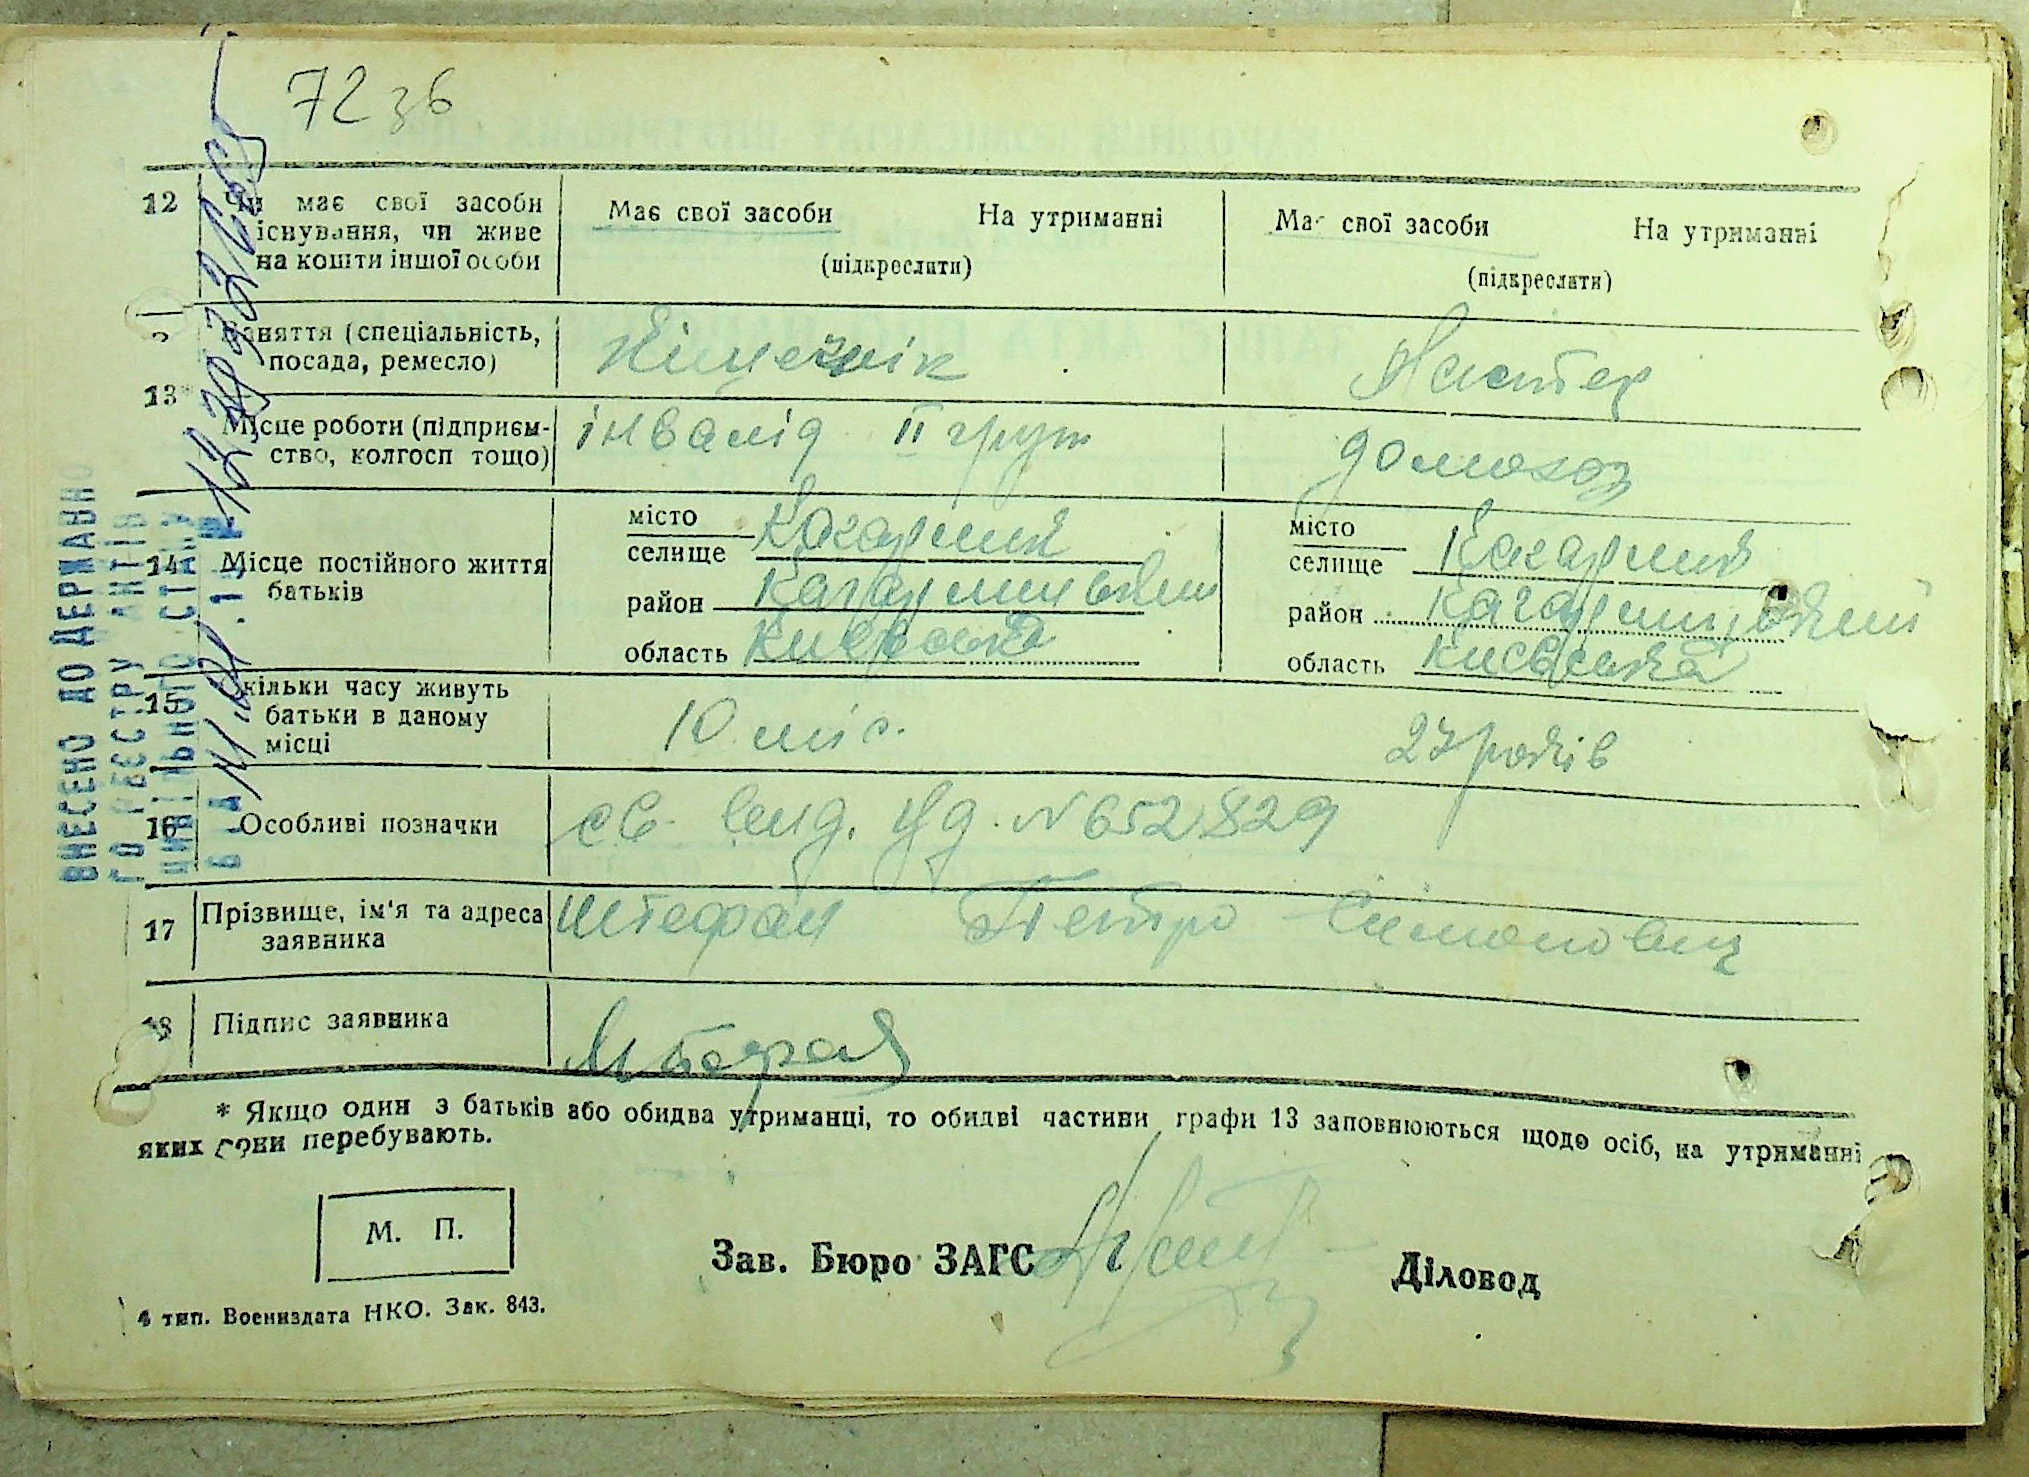 72 зв
12 Чи має свої засоби Має свої засоби На утриманні Має свої засоби На утриманні
існування, чи живе
на кошти іншої особи (підкреслити) (підкреслити)
Заняття (спеціальність,
посада, ремесло)
13*
Місце роботи (підприєм- інвалід II груп домохоз
ство, колгосп тощо)
14 Місце постійного життя
батьків
місто
селище Кагарлик
район Кагарлицький
область Київська
місто
селище Кагарлик
район Кагарлицький
область Київська
15 Скільки часу живуть
батьки в даному 10 міс. 27 років
місці
16 Особливі позначки св. N 652829
17 Прізвище, ім'я та адреса Штефан Петро Симонович
заявника
18 Підпис заявника Штефан
* Якщо один з батьків або обидва утриманці, то обидві частини графи 13 заповнюються щодо осіб, на утриманні
яких вони перебувають.
М. П.
Зав. Бюро ЗАГС Діловод
4 тип. Воениздата НКО. Зак. 843.
ВНЕСЕНО ДО ДЕРЖАВНО
ГО РЕЄСТРУ АКТІВ
ЦИВІЛЬНОГО СТАНУ